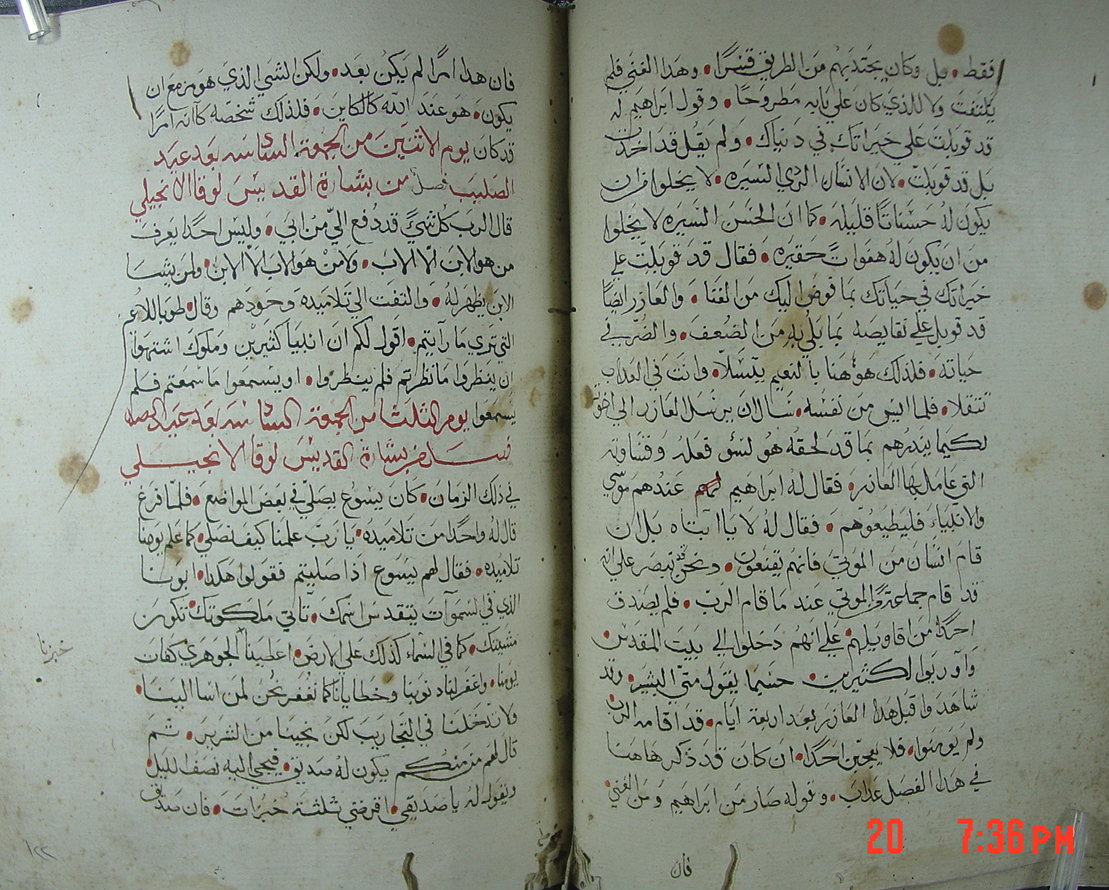 فقط ۰ بل وكان يجتذبهم من الطريق قسرًا ۰ وهذا الغني فلم
يلتفت ولا للذي كان على بابه مطروحًا ۰ وقول ابراهيم له
قد قوبلت على خيراتك في دنياك ۰ ولم يقل قد اخذت
بل قد قوبلت ۰ لان الانسان الردي السيره ۰ لا يخلوا من ان
يكون له حسناتًا قليله ۰ كما ان الحسن السيره لا يخلوا
من ان يكون له هفوات حقيره ۰ فقال قد قوبلت على
خيراتك في حياتك بما فوض اليك من الغنا ۰ والعازر ايضًا
قد قوبل على نقايصه بما بلي به من الضعف ۰ والضر في
حياته ۰ فلذلك هو ههنا بالنعيم يتسلا ۰ وانت في العذاب
تتقلا ۰ فلما ايس من نفسه ۰ سال ان يرسل العازر الى اخوته
لكيما ينذرهم بما قد لحقه هو لسو فعله وقساوته
التي عامل بها العازر ۰ فقال له ابراهيم لهم عندهم موسى
والانبياء فليطيعوهم ۰ فقال له لا يا ابتاه بل ان
قام انسان من الموتى فانهم يقنعون ۰ ونحن نبصر على انه
قد قام جماعة من الموتى عند ما قام الرب ۰ فلم يصدق
احدًا من قاويلهم على انهم دخلوا الى بيت المقدس
واوروا لكثيرين ۰ حسبما يقول متى البشير ۰ وقد
شاهدوا قبل هذا العازر بعد اربعة ايام ۰ قد اقامه الرب
ولم يومنوا ۰ فلا يعجبن احدًا ۰ ان كان قد ذكر هاهنا
في هذا الفصل عذاب ۰ وقوله صار من ابراهيم ومن الغني
فان
فان هذا امرًا لم يكن بعد ۰ ولكن الشي الذي هو مزمع ان
يكون ۰ هو عند الله كالكاين ۰ فلذلك شخصه كانه امرًا
قد كان يوم الاثنين من الجمعه السادسه بعد عيد
الصليب فصل من بشارة القديس لوقا الانجيلي
قال الرب كل شي قد دفع الي من ابي ۰ وليس احدًا يعرف
من هو الابن الا الاب ۰ ولا من هو الاب الا الابن ۰ ولمن يشا
الابن يظهر له ۰ والتفت الى تلاميذه وحودهم وقال ۰ طوبا للاعين
التي ترى ما رايتم ۰ اقول لكم ان انبيا كثيرين وملوك اشتهوا
ان ينظروا ما نظرتم فلم ينظروا ۰ او يسمعوا ما سمعتم فلم
يسمعوا يوم الثلثا من الجمعه السادسه بعد عيد الصليب
فصل من بشارة القديس لوقا الانجيلي
في ذلك الزمان ۰ كان يسوع يصلي في بعض المواضع ۰ فلما فرغ
قال له واحدًا من تلاميذه ۰ يا رب علمنا كيف نصلي ۰ كما علم يوحنا
تلاميذه ۰ فقال لهم يسوع اذا صليتم فقولوا هكذا ۰ ابونا
الذي في السموات يتقدس اسمك ۰ تاتي ملكوتك ۰ تكون
مشيتك ۰ كما في السماء كذلك على الارض ۰ اعطينا الجوهري كفاف
خبزنا
يومنا ۰ واغفر لنا ذنوبنا وخطايانا كما نغفر نحن لمن اسا الينا ۰
ولا تدخلنا في التجاريب لكن نجينا من الشرير ۰ ثم
قال لهم من منكم يكون له صديق ۰ فيجي اليه نصف الليل ۰
ويقول له يا صديقي ۰ اقرضني ثلثة خبزات ۰ فان صديق
١٢٢
20 7:36 PM